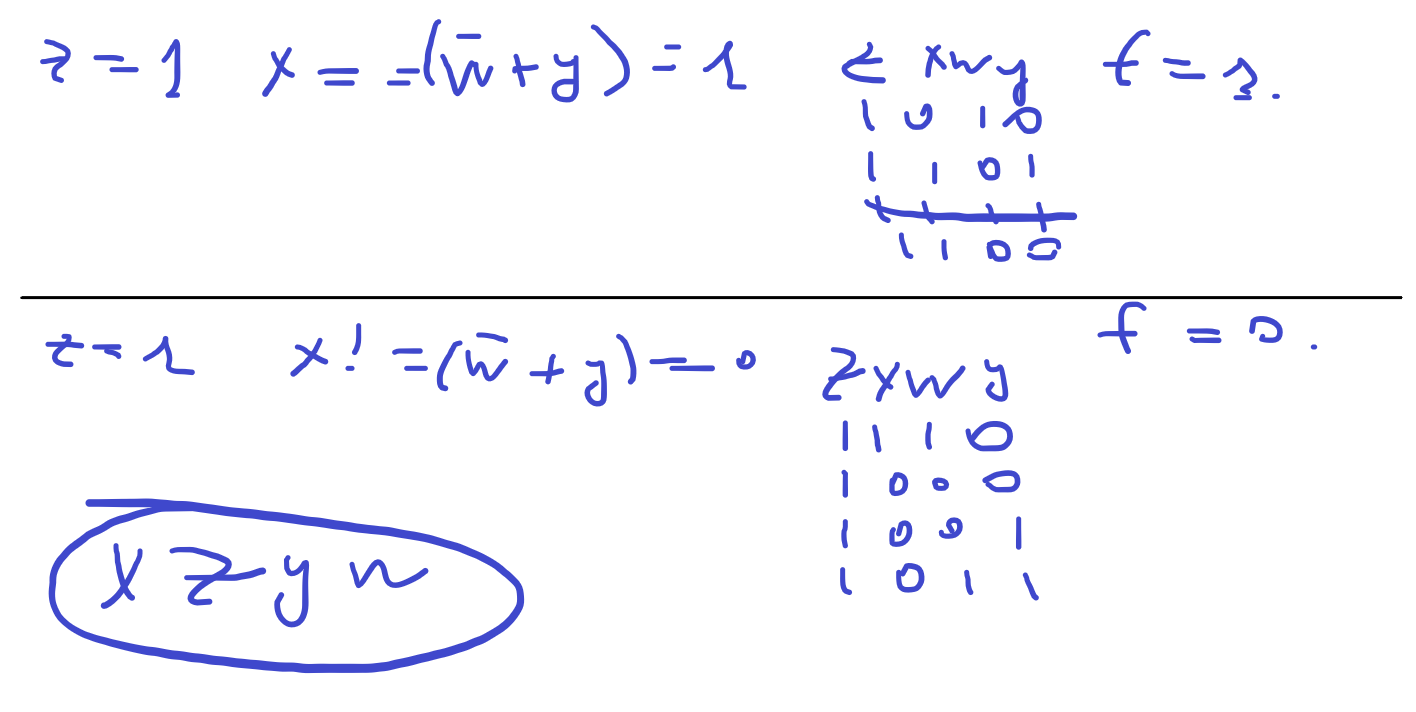 z = 1 x = = (w̄ + y) = 1 z x w y f = 1.
1 0 1 0
1 1 0 1
1 1 1 1
1 1 0 0
z = 1 x! = (w̄ + y) = 0 z x w y f = 0.
1 1 1 0
1 0 0 0
1 0 0 1
1 0 1 1
x z y w